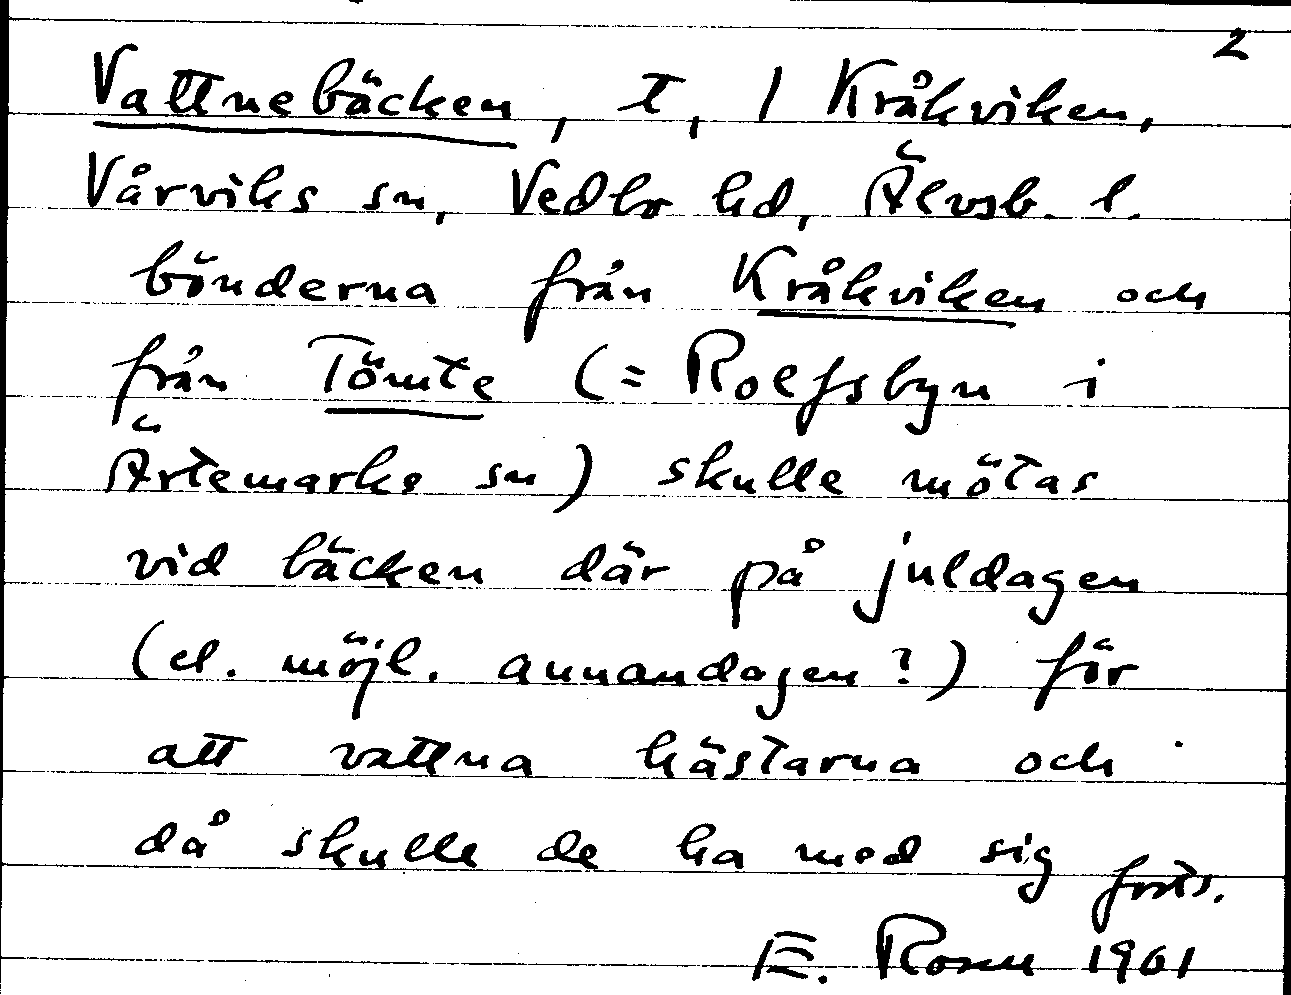 2
Vattnebäcken, t, 1 Kråkviken,
Vårviks sn, Vedbo hd, Älvsb. l.
bönderna från Kråkviken och
från Tömte (= Rolfsbyn i
Ärtemarks sn) skulle mötas
vid bäcken där på juldagen
(el. möjl. annandagen?) för
att vattna hästarna och
då skulle de ha med sig forts.
E. Rosen 1961